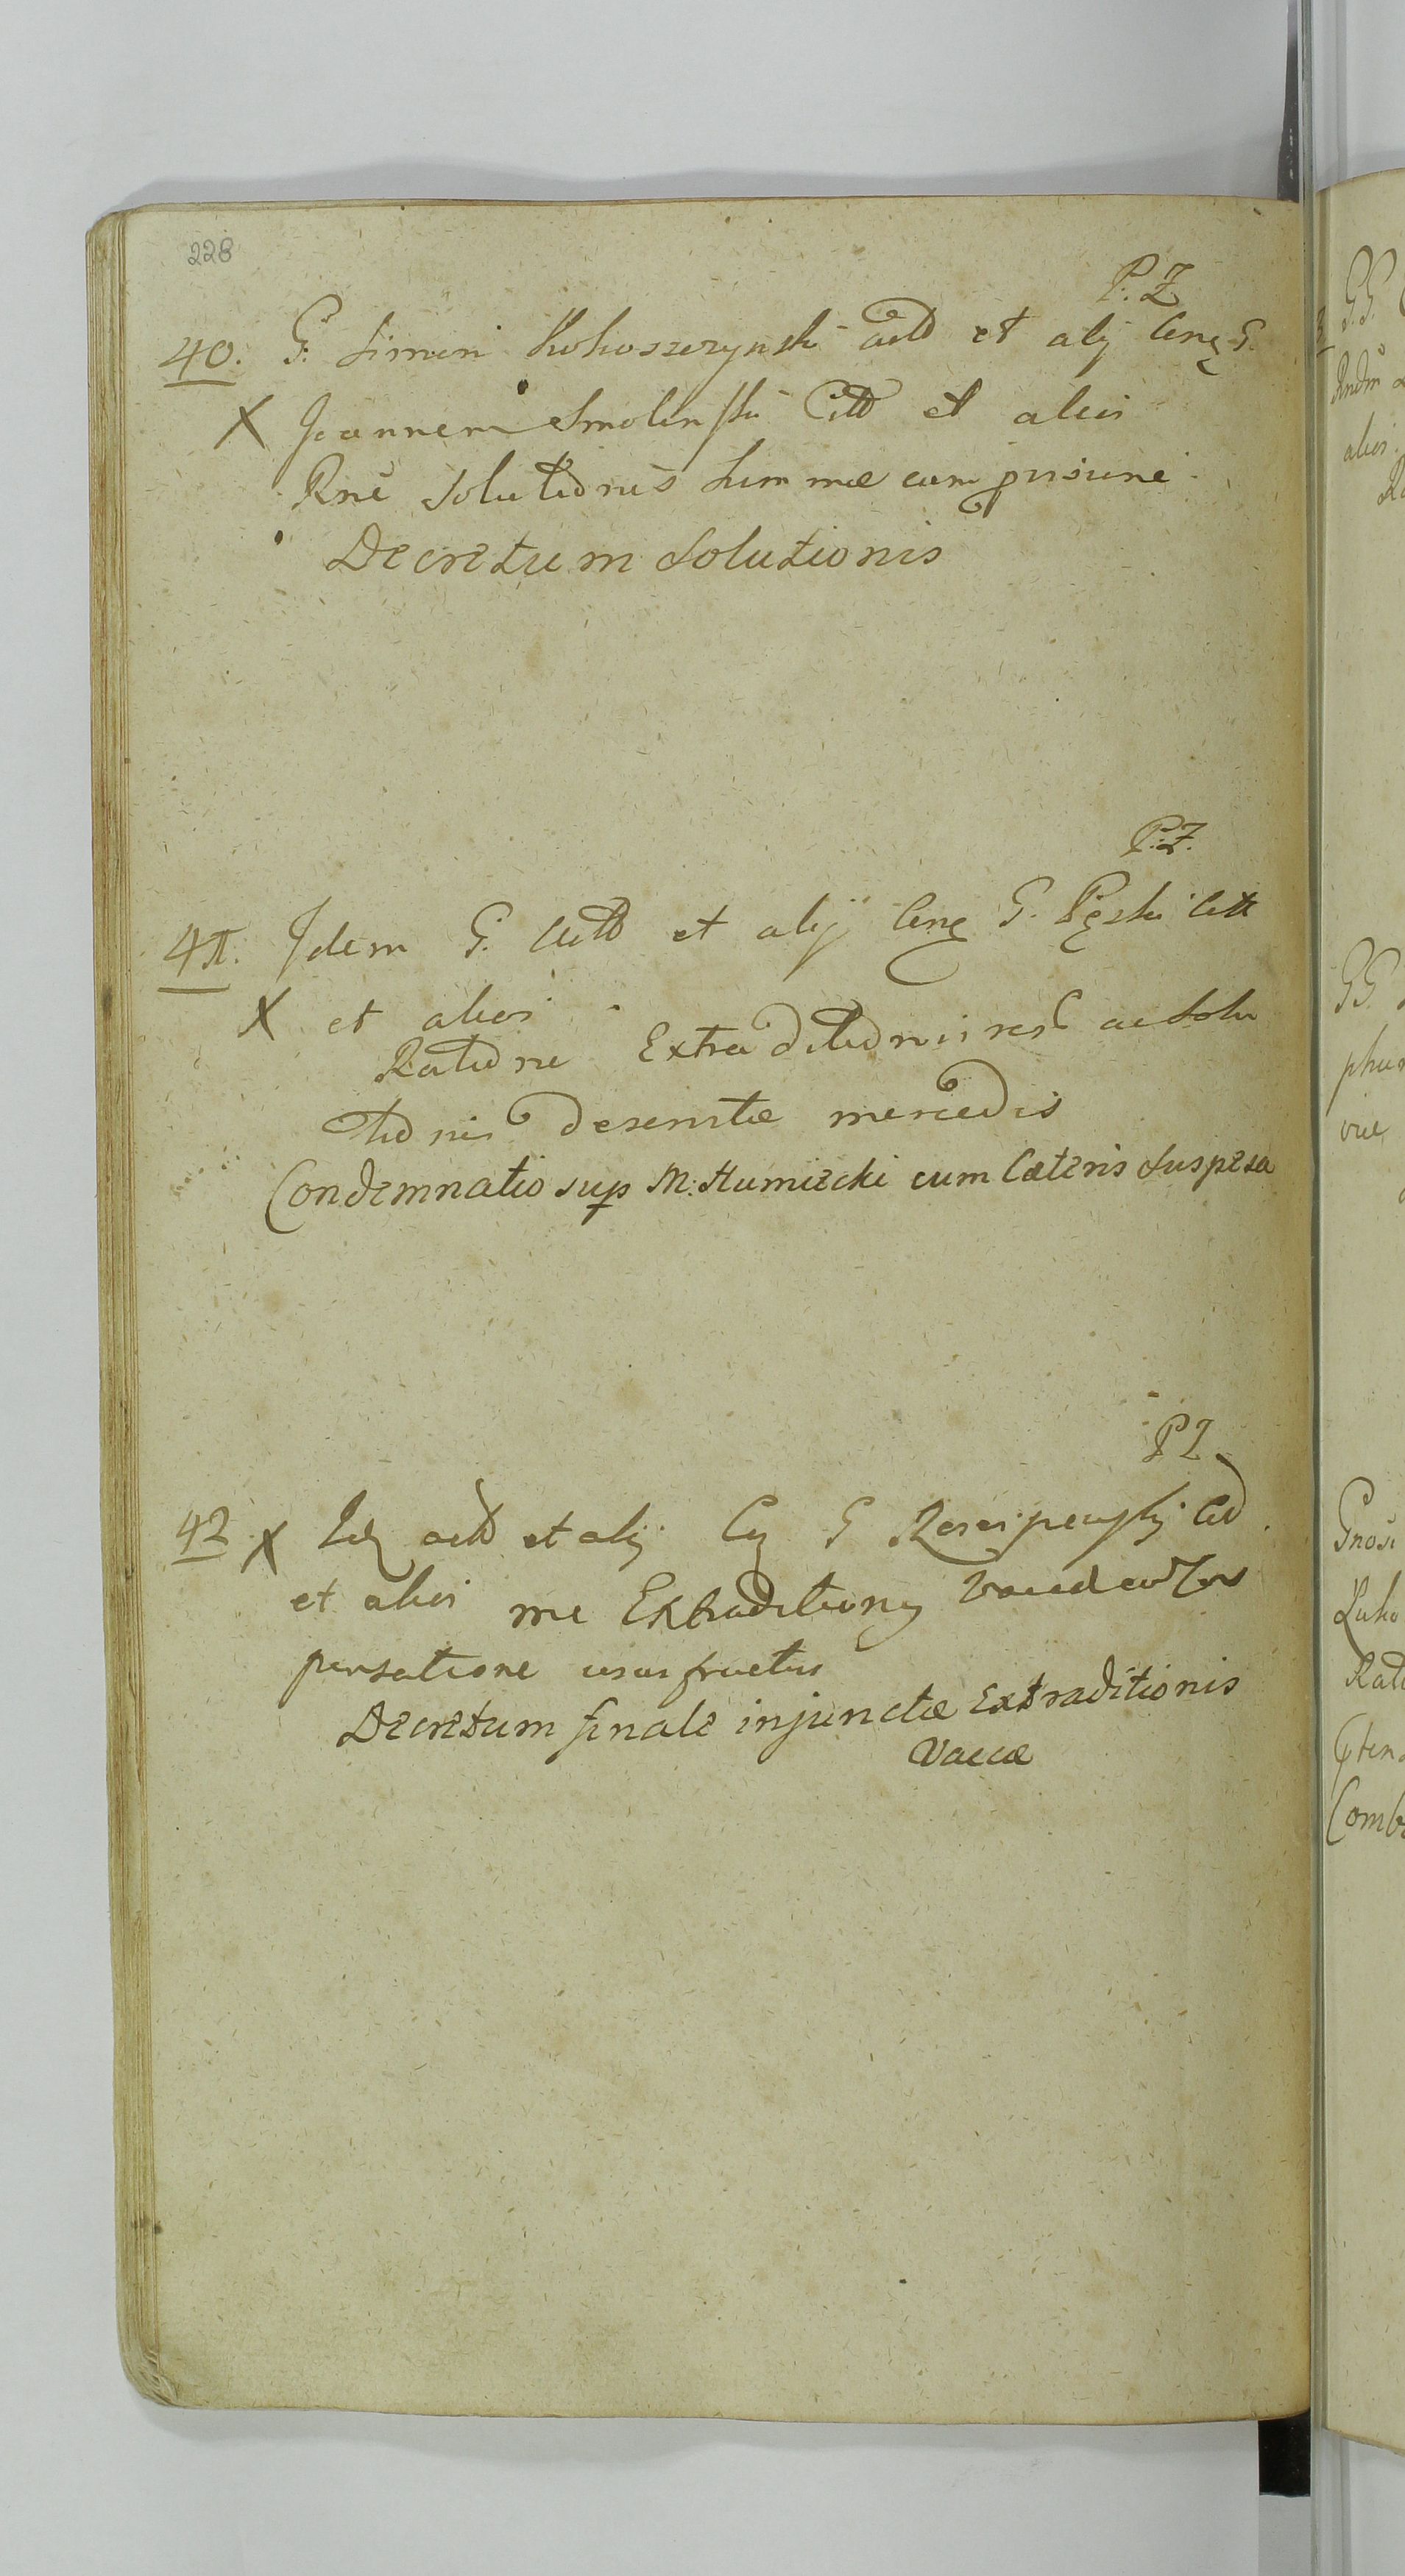 228
P. Z
40. G. Simon Kokoszczynski actb et alij Cenę G.
X Joannem Smolinski Citt et alios
Rnē Solutionis Summæ cum
Decretum Solutionis
P. Z.
41. Idem G. Actb et alij Cenę G. Pęski Citt
X et alios
Ratione Extraditionis ac Solu
tionis deservitæ mercedis
Condemnatio sup M. Humiecki cum Cæteris Suspesa
P Z
42 X actb et alij G
et alios Extraditionis
pensatione usus fructus
Decretum finale injunctæ Extraditionis
Vaccæ
GG
Rndm
alios
GG
phu
Gnosi
Luko
Rati
Comb